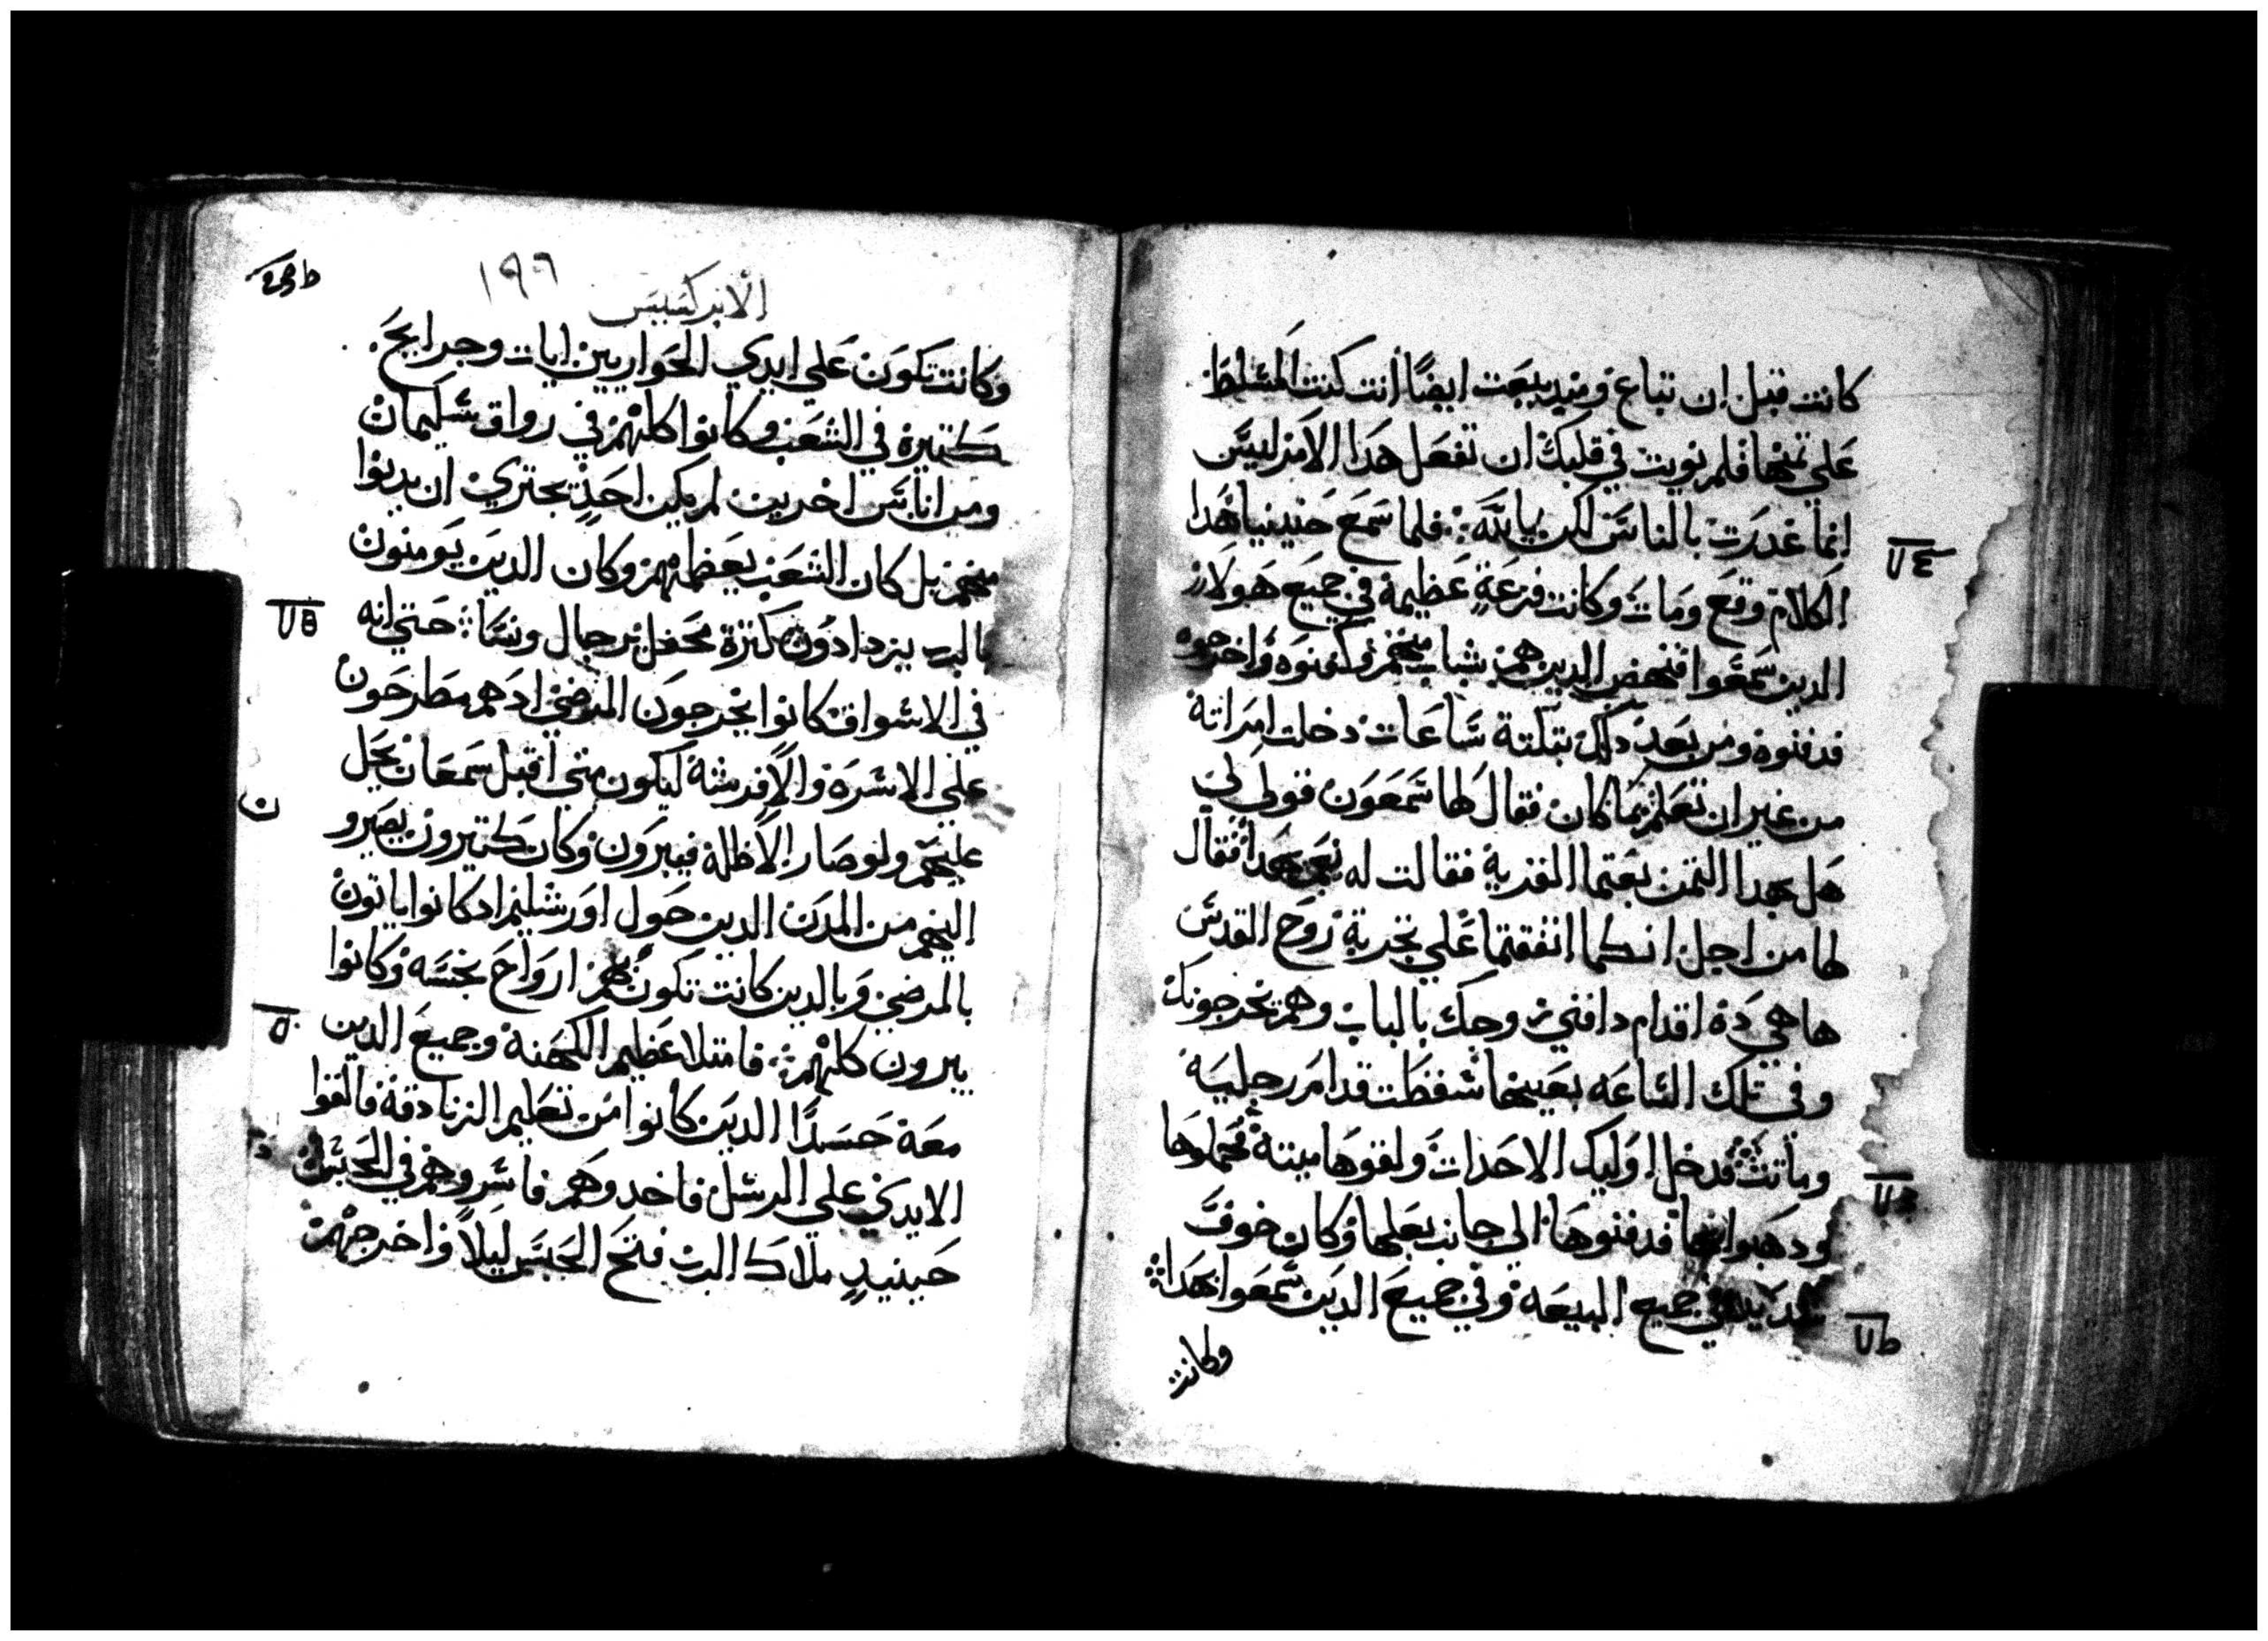 كانت قبل ان تباع ومند بيعت ايضًا انت كنت المسَلط
عَلي تمنها فلم نويت في قلبك ان تفعَل هَدا الامر ليسَ
انما غدرَت بالناسَ لكن بالله فلما سَمعَ حَنينيا هَدا
الكلام وقعَ ومَاتَ وكانت فزعَة عَظيمة في جميعَ هَولاَي
الدين سَمعَوا فنهض الدين هم شباب منهم وكفنوه واخرجوه
فدفنوه ومن بعَد دلك بتلتة سَاعَات دخلت امراته
من غير ان تعَلم بما كان فقال لها سَمعَون قولي لي
هَل بهدا التمن بعَتما القرية فقالت له نعَم بهَدا فقال
لها من اجل انكما اتفقتما عَلي تجربة روَح القدسَ
ها هي دَه اقدام دافني زوجك بالباب وهم يخرجونك
وفي تلك السَاعَه بعَينها سَقطَت قدامَ رجليه
وماتت فدخل اوَليك الاحَدات ولقوهَا ميتة فحملوهَا
ودهَبوا بها فدفنوهَا الي جانب بعَلها وكان خوفَ
شديد في جميع البيعَة وفي جميعَ الدين سَمعَوا بهَدا
وكانت
١٩٦
الابركسيس
وكانت تكون عَلي ايدي الحَواريين ايات وجرايحَ
كتيرة في الشعَب وكانوا كلهم في رواق سَليمان
ومن اناسَ اخرين لم يكن احَد يجتري ان يدنوا
منهم بل كان الشعَب يعَظمهم وكان الدين يَومنون
بالرب يزدادون كترة محَفل رجال ونسَا حَتي انه
في الاسَواق كانوا يخرجون المرضي ادهم مطرحَون
علي الاسَرَة والافرشة ليكون متي اقبل سَمعَان يحَل
عليهم ولو صار الاظلة فيبرون وكان كتيرون يصَيرو
اليهم من المدَن الدين حَول اورَشليم ادكانوا ياتون
بالمرضي وَبالدين كانت تكون بهم ارواحَ نجسَه وكانوا
يبرون كلهم فامتلا عَظيم الكهَنة وجميعَ الدين
معَه حَسَدًا الدين كانوا من تعَليم الزنادقة فالقوا
الايدي علي الرسَل فاخدوهَم فاسَروهم في الحَبسَ
حَينيدٍ ملاك الرب فتحَ الحَبسَ ليلاً واخرجهم